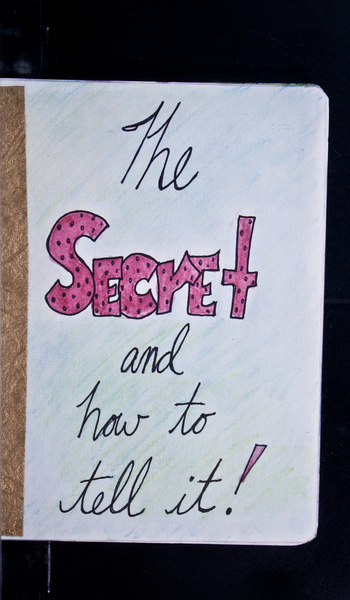 The
SECrEt
and
how to
tell it!